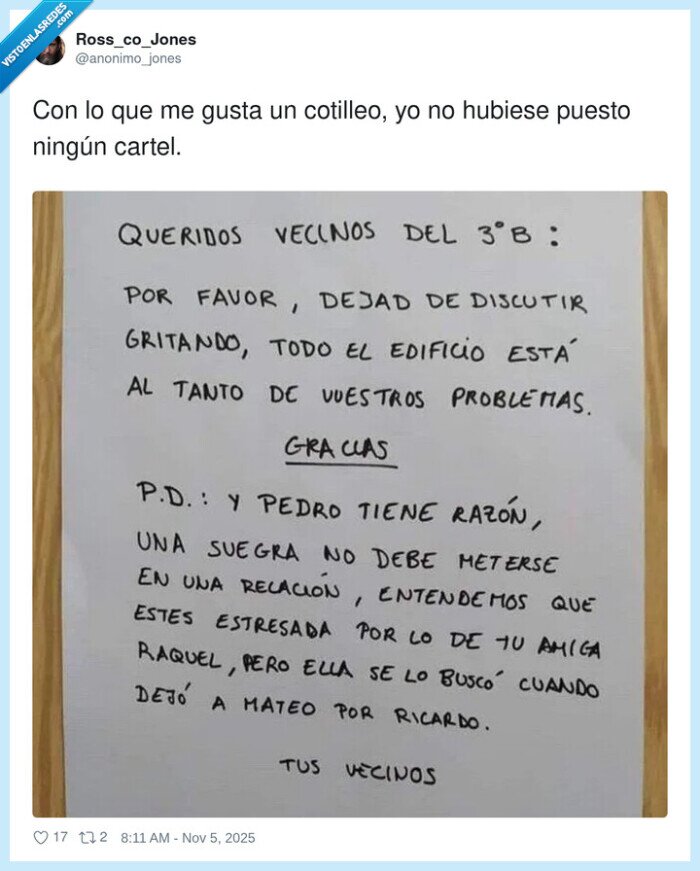 VISTOENLASREDES
.com
Ross_co_Jones
@anonimo_jones
Con lo que me gusta un cotilleo, yo no hubiese puesto
ningún cartel.
QUERIDOS VECINOS DEL 3°B :
POR FAVOR, DEJAD DE DISCUTIR
GRITANDO, TODO EL EDIFICIO ESTÁ
AL TANTO DE VUESTROS PROBLEMAS.
GRACIAS
P.D.: Y PEDRO TIENE RAZÓN,
UNA SUEGRA NO DEBE METERSE
EN UNA RELACIÓN, ENTENDEMOS QUE
ESTES ESTRESADA POR LO DE TU AMIGA
RAQUEL, PERO ELLA SE LO BUSCÓ CUANDO
DEJÓ A MATEO POR RICARDO.
TUS VECINOS
17 2 8:11 AM - Nov 5, 2025